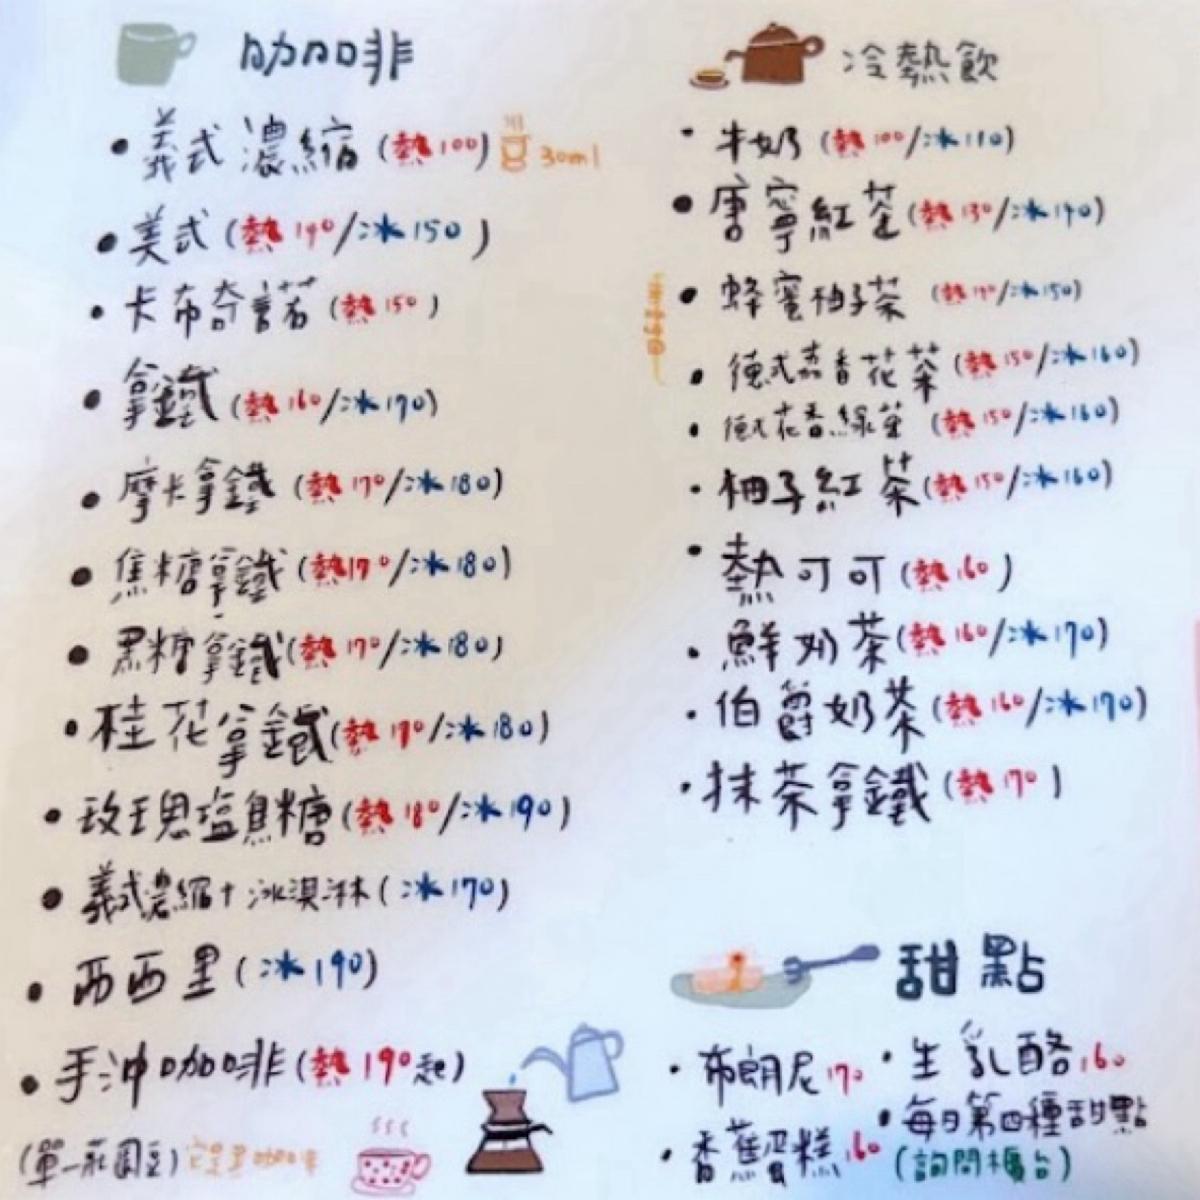 咖啡
• 義式濃縮 (熱100) 30ml
• 美式 (熱140/冰150)
• 卡布奇諾 (熱150)
• 拿鐵 (熱160/冰170)
• 摩卡拿鐵 (熱170/冰180)
• 焦糖拿鐵 (熱170/冰180)
• 黑糖拿鐵 (熱170/冰180)
• 桂花拿鐵 (熱170/冰180)
• 玫瑰塩焦糖 (熱180/冰190)
• 義式濃縮+冰淇淋 (冰170)
• 西西里 (冰190)
• 手沖咖啡 (熱190起)
(單一莊園豆)
冷熱飲
• 牛奶 (熱100/冰110)
• 唐寧紅茶 (熱130/冰140)
• 蜂蜜柚子茶 (熱140/冰150)
• 德式 香花茶 (熱150/冰160)
• 德式花香綠茶 (熱150/冰160)
• 柚子紅茶 (熱150/冰160)
• 熱可可 (熱160)
• 鮮奶茶 (熱160/冰170)
• 伯爵奶茶 (熱160/冰170)
• 抹茶拿鐵 (熱170)
甜點
• 布朗尼170
• 生乳酪160
• 香蕉蛋糕160
• 每日第四種甜點
(詢問櫃台)